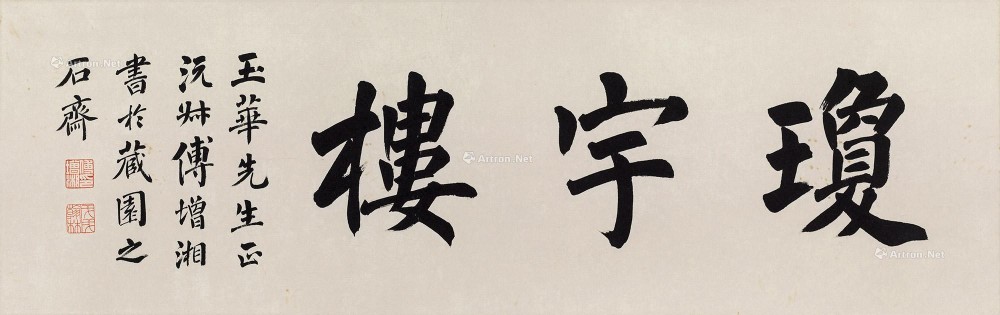 瓊宇樓
玉華先生正
沅叔傅增湘
書於藏園之
石齋
Artron.Net
Artron.Net
Artron.Net